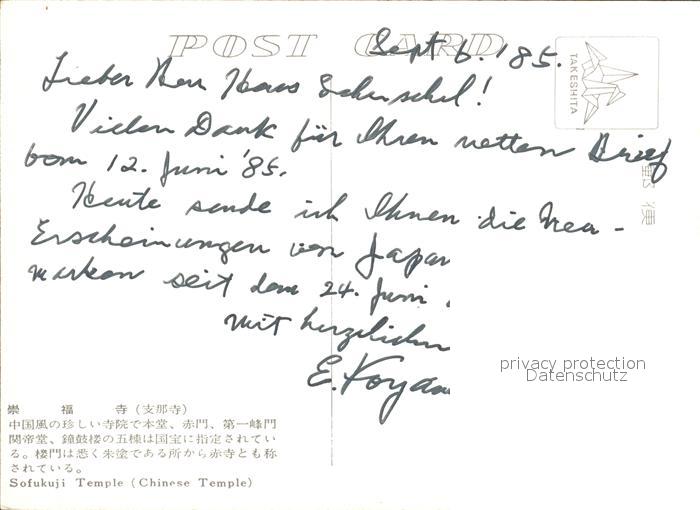 POST CARD
Sept 6. '85.
TAKESHITA
郵便
Lieber Herr Hans
Vielen Dank für Ihren netten Brief
vom 12. Juni '85.
Heute sende ich Ihnen die Neu-
Erscheinungen von Japan
marken seit dem 24. Juni.
Mit herzlichen
E. Koyam
privacy protection
Datenschutz
崇福寺(支那寺)
中国風の珍しい寺院で本堂、赤門、第一峰門
関帝堂、鐘鼓楼の五棟は国宝に指定されてい
る。楼門は悉く朱塗である所から赤寺とも称
されている。
Sofukuji Temple (Chinese Temple)